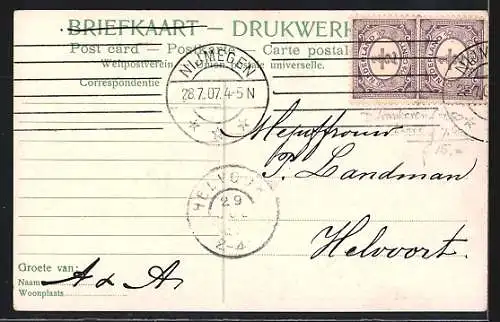 BRIEFKAART — DRUKWERK
Post card — Postkarte — Carte postale
Weltpostverein — Union postale universelle.
Correspondentie
NIJMEGEN
28.7.07. 4-5 N
NEDERLAND
NEDERLAND
NIJM
Mejuffrouw
P. Landman
Helvoort
HELVOORT
29
2-4
15,-
Groete van:
Naam A & A
Woonplaats